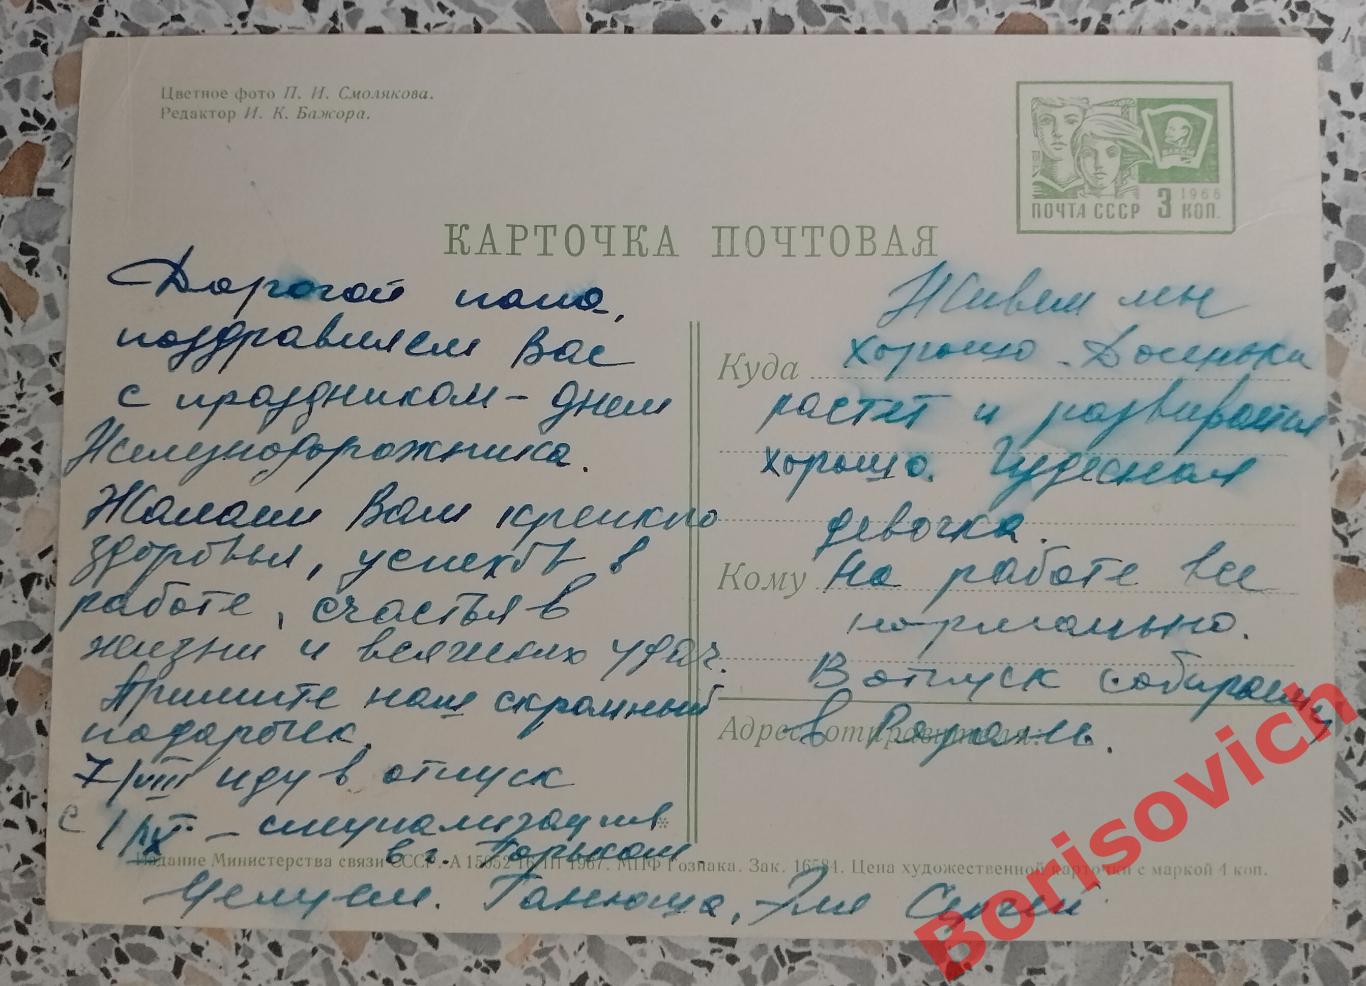 Цветное фото П. И. Смолякова.
Редактор И. К. Бажора.
ВЛКСМ
1966
ПОЧТА СССР 3 КОП.
КАРТОЧКА ПОЧТОВАЯ
Дорогой папа,
поздравляем Вас
с праздником - днем
Железнодорожника.
Желаем Вам крепкого
здоровья, успехов в
работе, счастья в
жизни и всяческих удач.
Примите наш скромный
подарочек.
7/VIII иду в отпуск
с 1/IX - специализация
в г. Горьком.
Целуем. Танюша, Эля Сергей
Живем мы
хорошо. Доченька
растет и развивается
хорошо. Чудесная
девочка.
На работе все
нормально.
В отпуск собираемся
в
Куда
Кому
Адрес отправителя:
Издание Министерства связи СССР. А 15052 16/III 1967. МПФ Гознака. Зак. 16584. Цена художественной карточки с маркой 4 коп.
Borisovich